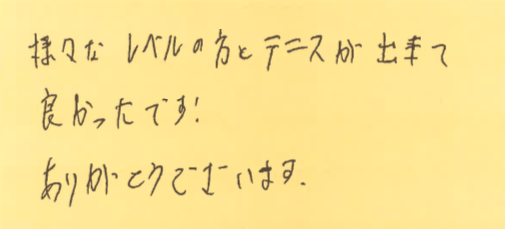 様々な レベルの方とテニスが出来て
良かったです!
ありがとうございます.